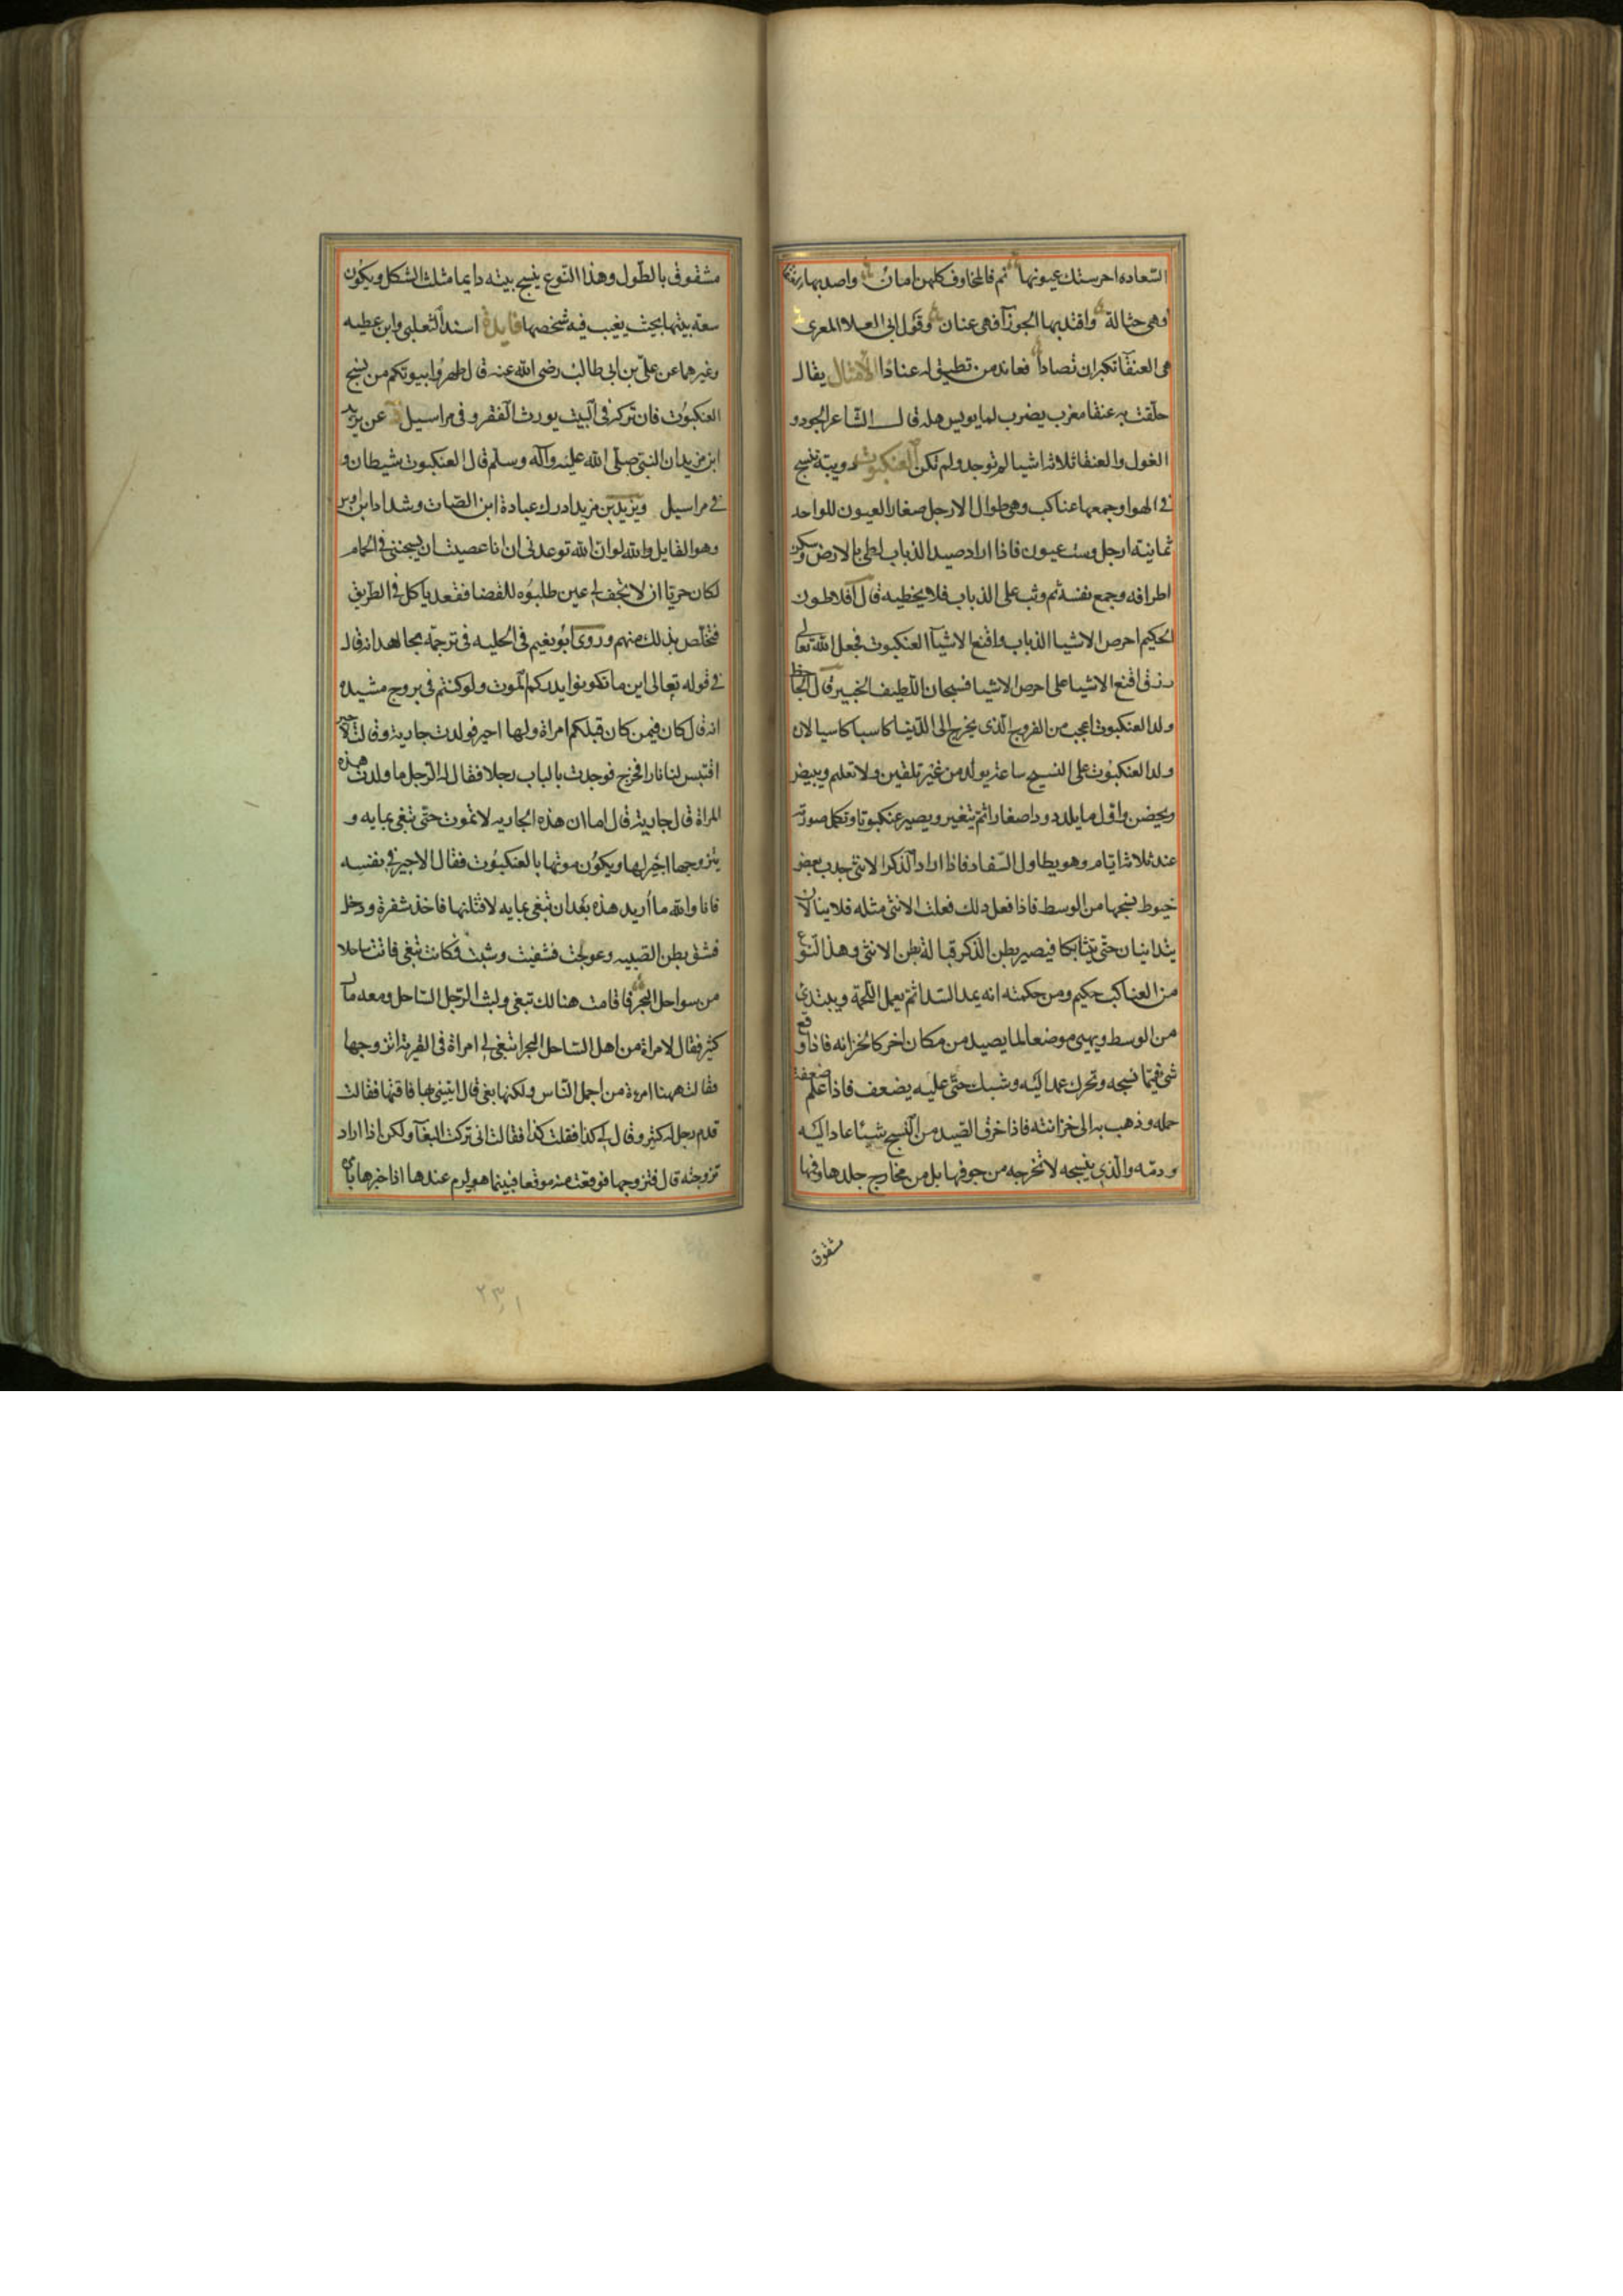 السعاده احرستك عيونها نم فالمخاوف كلهن امان واصد بها
فهى حبالة واقتد بها الجوزآ فهى عنان وقول ابى العلا المعرى
هى العنقآ تكبر ان تصادا فعاند من تطيق له عنادا الامثال يقال
حلقت به عنقا مغرب يضرب لما يويس منه قال الشاعر الجود و
الغول والعنقا ثلاثه اشيا لم توجد ولم تكن العنكبوت دويبة تنسج
فى الهوا وجمعها عناكب وهى طوال الارجل صغار العيون للواحد
ثمانية ارجل وست عيون فاذا اراد صيد الذباب لطى بالارض وسكن
اطرافه وجمع نفسه ثم وثب على الذباب فلا يخطيه قال افلاطون
الحكيم احرص الاشيا الذباب واقنع الاشيآ العنكبوت فجعل الله تعالى
رزق اقنع الاشيا على احرص الاشيا فسبحان اللطيف الخبير قال الجاحظ
ولد العنكبوت اعجب من الفروج الذى يخرج الى الدنيا كاسبا كاسيا لان
ولد العنكبوت على النسج ساعة يولد من غير تلقين ولا تعليم ويبيض
ويحضن واول ما يلد دودا صغارا ثم يتغير ويصير عنكبوتا وتكمل صورته
عند ثلاثة ايام وهو يطاول السفاد فاذا اراد الذكر الانثى جدب بعض
خيوط نسجها من الوسط فاذا فعل ذلك فعلت الانثى مثله فلا يزالان
يتدانيان حتى يتشابكا فيصير بطن الذكر قبالة بطن الانثى وهذا النوع
من العناكب حكيم ومن حكمته انه يمد السدا ثم يعمل اللحمة ويبتدئ
من الوسط ويهيئ موضعا لما يصيد من مكان اخر كالخزانه فاذا وقع
شئ فيما نسجه وتحرك عمد اليه وشبك حتى عليه يضعف فاذا علم ضعفه
حمله وذهب به الى خزانته فاذا خرق الصيد من النسج شيئا عاد اليه
ورمه والذى ينسجه لا تخرجه من جوفها بل من خارج جلدها وفمها
مشقوق
مشقوق بالطول وهذا النوع ينسج بيته دايما مثلث الشكل ويكون
سعة بيتها بحيث يغيب فيه شخصها فايدة اسند الثعلبى وابن عطيه
وغيرهما عن على بن ابى طالب رضى الله عنه قال طهروا بيوتكم من نسج
العنكبوت فان تركه فى البيت يورث الفقر وفى مراسيل عن يزيد
ابن مزيد ان النبى صلى الله عليه وآله وسلم قال العنكبوت شيطان و
فى مراسيل ويزيد بن مزيد ادرك عبادة ابن الصامت وشداد ابن اوس
وهو القايل والله لو ان الله توعدنى ان انا عصيت ان يسجننى فى الحمام
لكان حريا ان لا تجف لى عين طلبوه للقضا فقعد ياكل فى الطريق
فتخلص بذلك منهم وروى ابو نعيم فى الحليه فى ترجمة مجاهد انه قال
فى قوله تعالى اين ما تكونوا يدرككم الموت ولو كنتم فى بروج مشيده
انه قال كان فيمن كان قبلكم امراة ولها اجير فولدت جارية وقالت لاجيرها
اقتبس لنا نارا فخرج فوجدت بالباب رجلا فقال له الرجل ما ولدت هذه
المراة قال جارية قال اما ان هذه الجاريه لا تموت حتى تبغى بمايه و
يتزوجها اجيرها ويكون موتها بالعنكبوت فقال الاجير فى نفسه
فانا والله ما أريد هذه بعد ان تبغى بمايه لاقتلنها فاخذ شفرة ودخل
فشق بطن الصبيه وعولجت فشفيت وشبت فكانت تبغى فاتت ساحلا
من سواحل البحر فاقامت هنالك تبغى ولبث الرجل الساحل ومعه مال
كثير فقال لامراة من اهل الساحل البحر ابتغى لى امراة فى القرية اتزوجها
فقالت ههنا امرءة من اجمل الناس ولكنها بغى قال ايتينى بها فاقتها فقالت
قدم رجل له كثير وقال لى كذا فقلت كذا فقالت انى تركت البغآ ولكن اذا اراد
تزوجته قال فتزوجها فوقعت منه موقعا فبينما هو يوم عندها اذا خبرها بامره
٢٣١